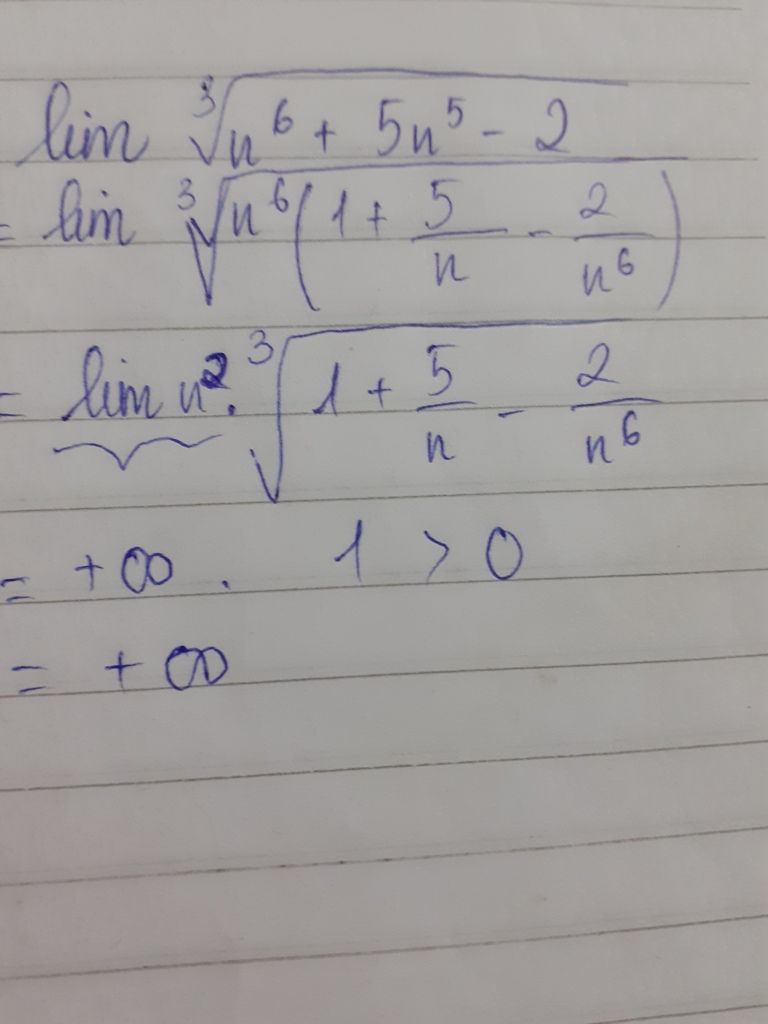 lim ∛(n⁶ + 5n⁵ - 2)
= lim ∛(n⁶(1 + 5/n - 2/n⁶))
= lim n² . ∛(1 + 5/n - 2/n⁶)
= +∞ . 1 > 0
= +∞